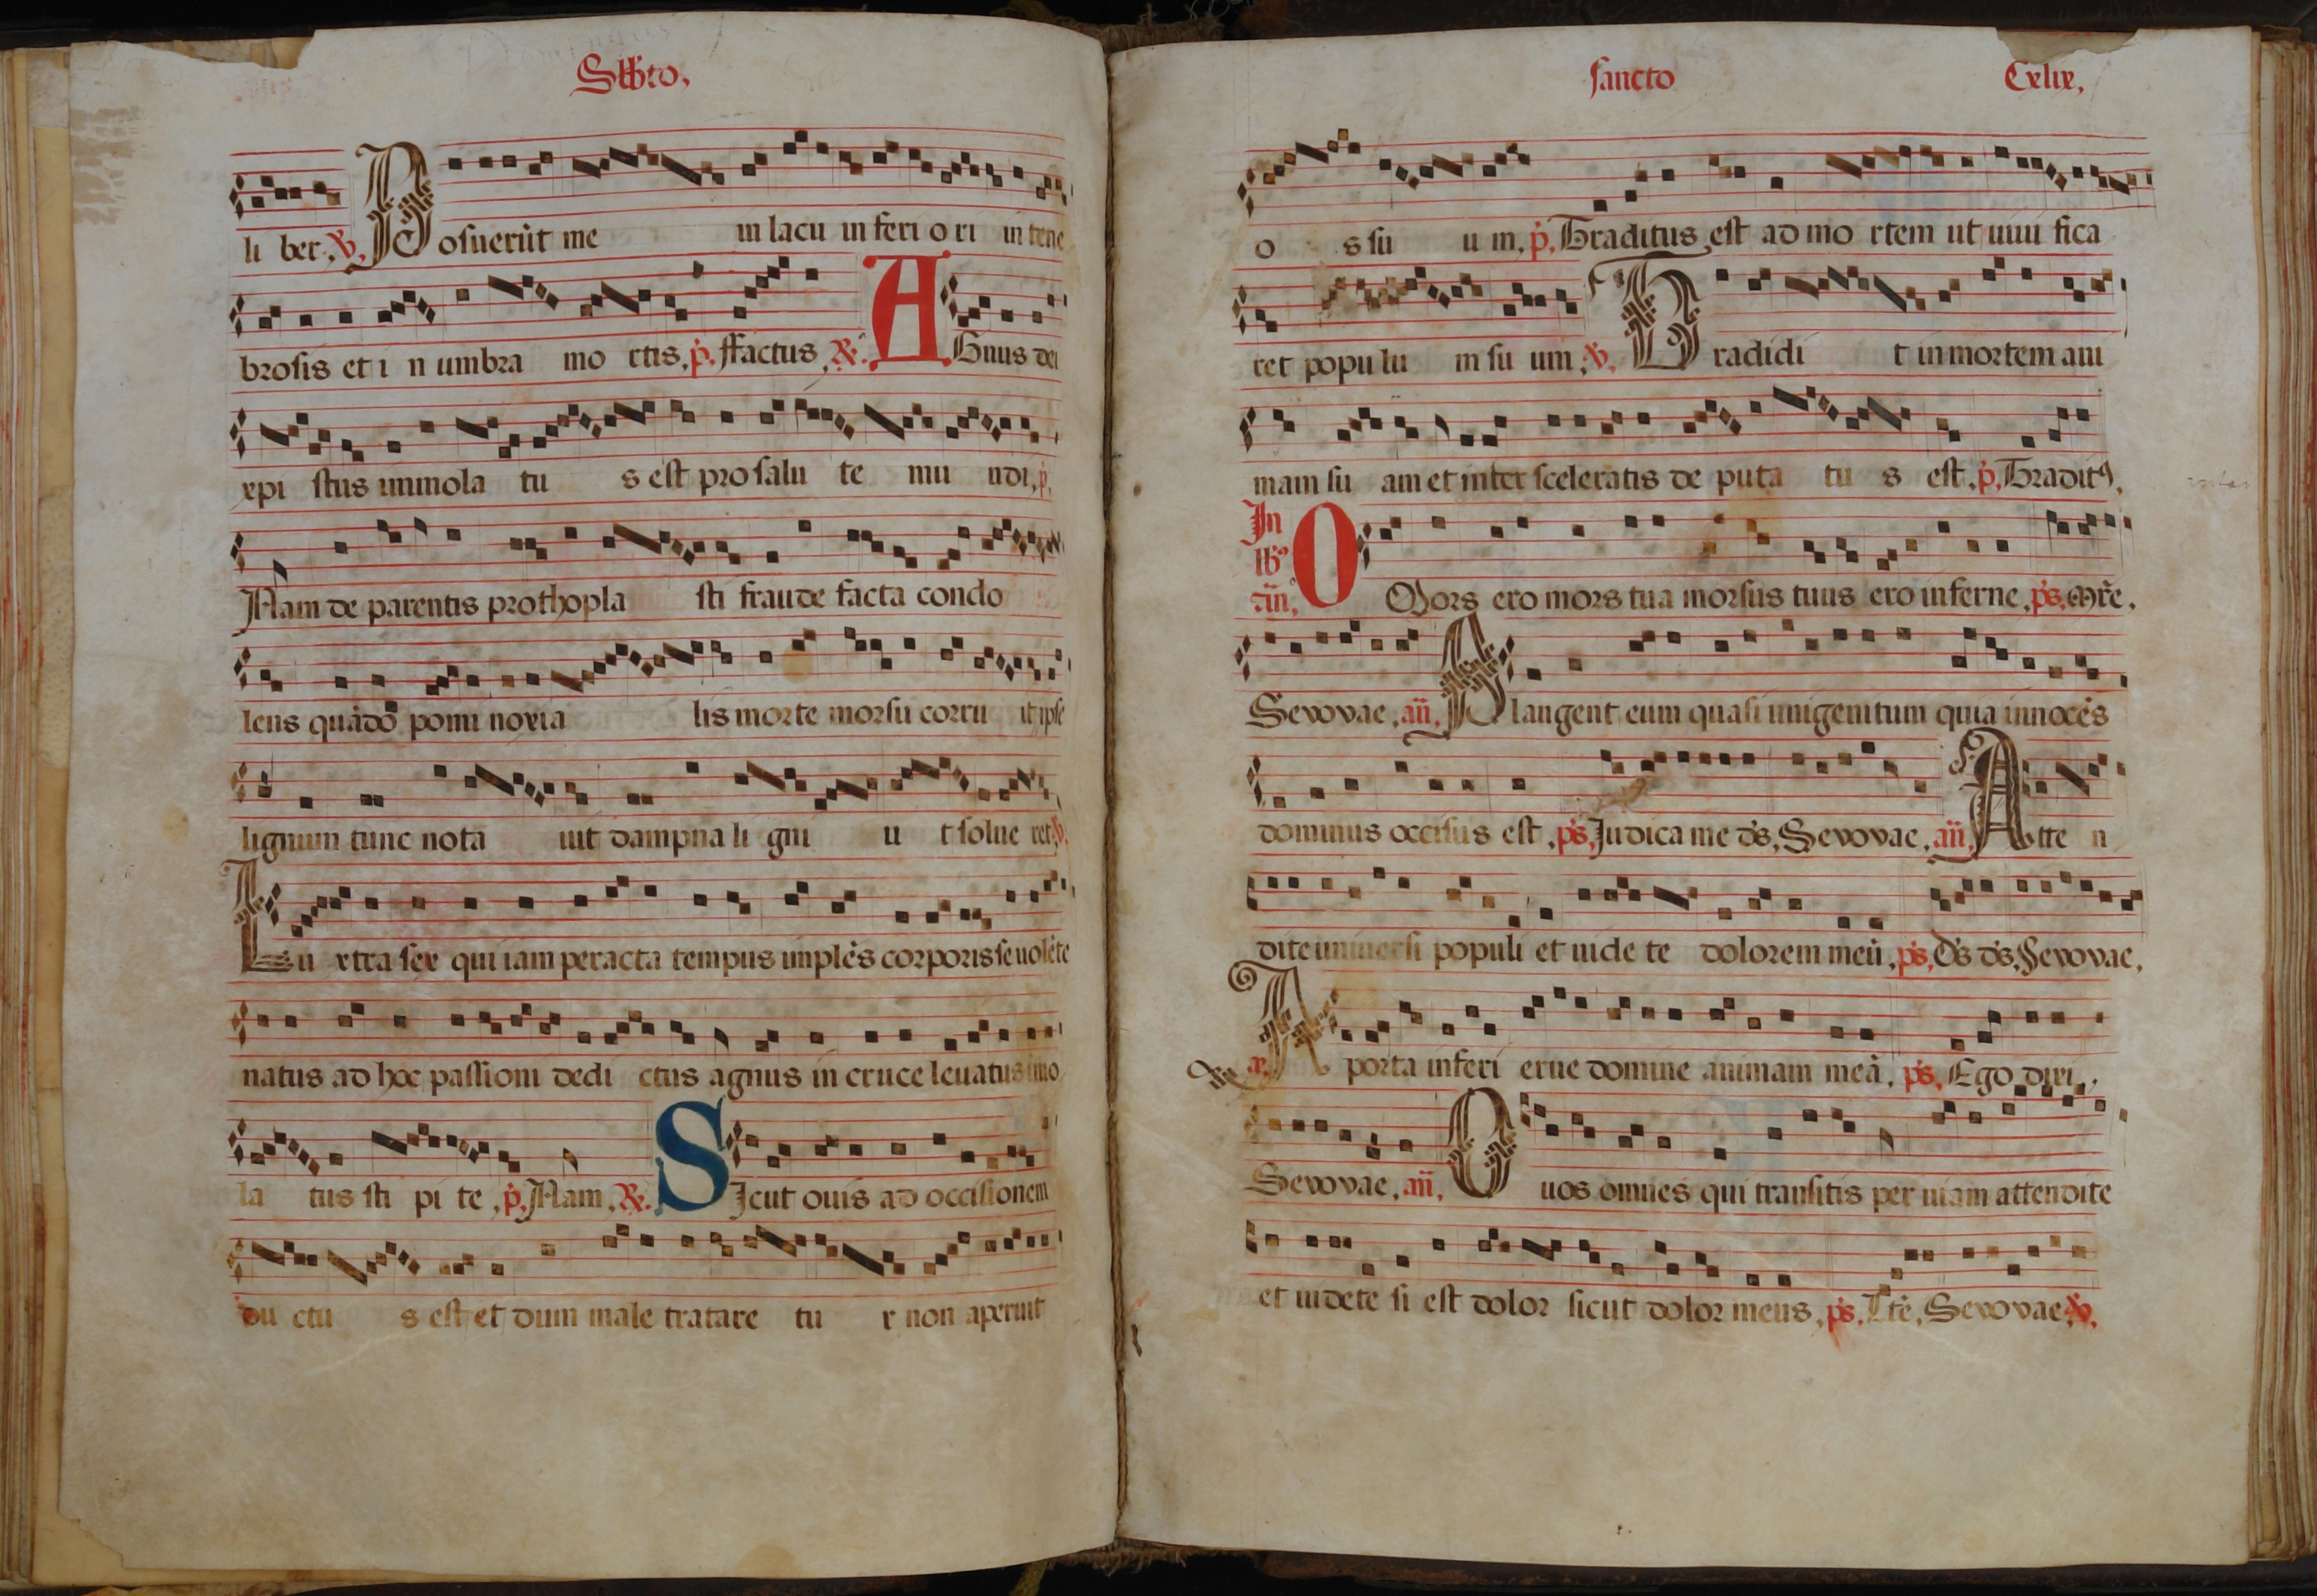 Sabbto,
li ber, ℣, Posuerūt me in lacu in feri o ri in tene
brosis et i n umbra mo rtis, p̄, ffactus, ℟. AGnus dei
xpi stus immola tu s est pro salu te mu ndi, p̄,
Nam de parentis prothopla sti fraude facta condo
lens quādo pomi noxia lis morte morsu corru it ipse
lignum tunc nota uit dampna li gni u t solue ret, ℣,
Lu xtra sex qui iam peracta tempus implēs corporis se uolēte
natus ad hoc passioni dedi ctus agnus in cruce leuatus imo
la tus sti pi te, p̄, Nam, ℟. SIcut ouis ad occisionem
du ctu s est et dum male tratare tu r non aperuit
sancto
o s su u m, p̄, Traditus est ad mo rtem ut uiui fica
ret popu lu m su um, ℣, Tradidi t in mortem ani
mam su am et inter sceleratis de puta tu s est, p̄, Tradit⁹,
In
añ, O Mors ero mors tua morsus tuus ero inferne, p̄s, Mr̄e,
Sevovae, añ, Plangent eum quasi unigenitum quia innocēs
dominus occisus est, p̄s, Judica me d̄s, Sevovae, añ, Atte n
dite uniuersi populi et uide te dolorem meū, p̄s, D̄s d̄s, Sevovae,
A porta inferi erue domine animam meā, p̄s, Ego dixi,
Sevovae, añ, O uos omnes qui transitis per uiam attendite
et uidete si est dolor sicut dolor meus, p̄s, Sevovae, ℣,